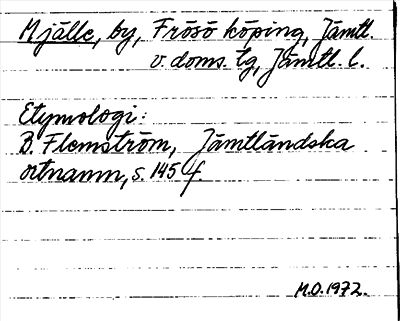 Mjälle, by, Frösö köping, Jämtl.
v. doms. tg, Jämtl. l.
Etymologi:
B. Flemström, Jämtländska
ortnamn, s. 145 f.
M.O. 1972.